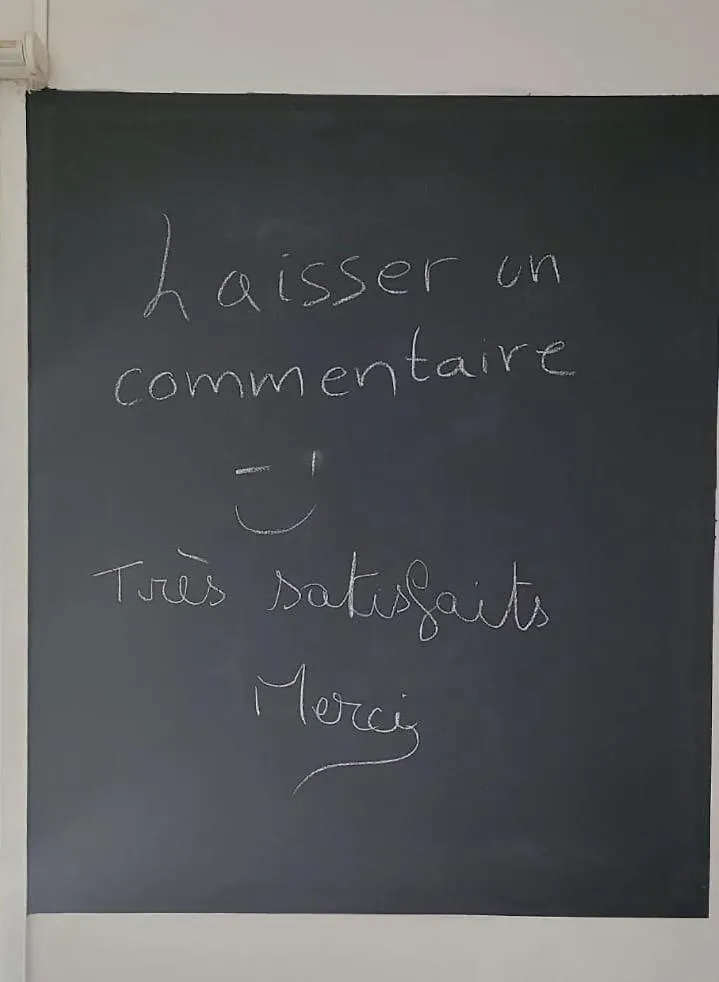 Laisser un
commentaire
Très satisfaits
Merci